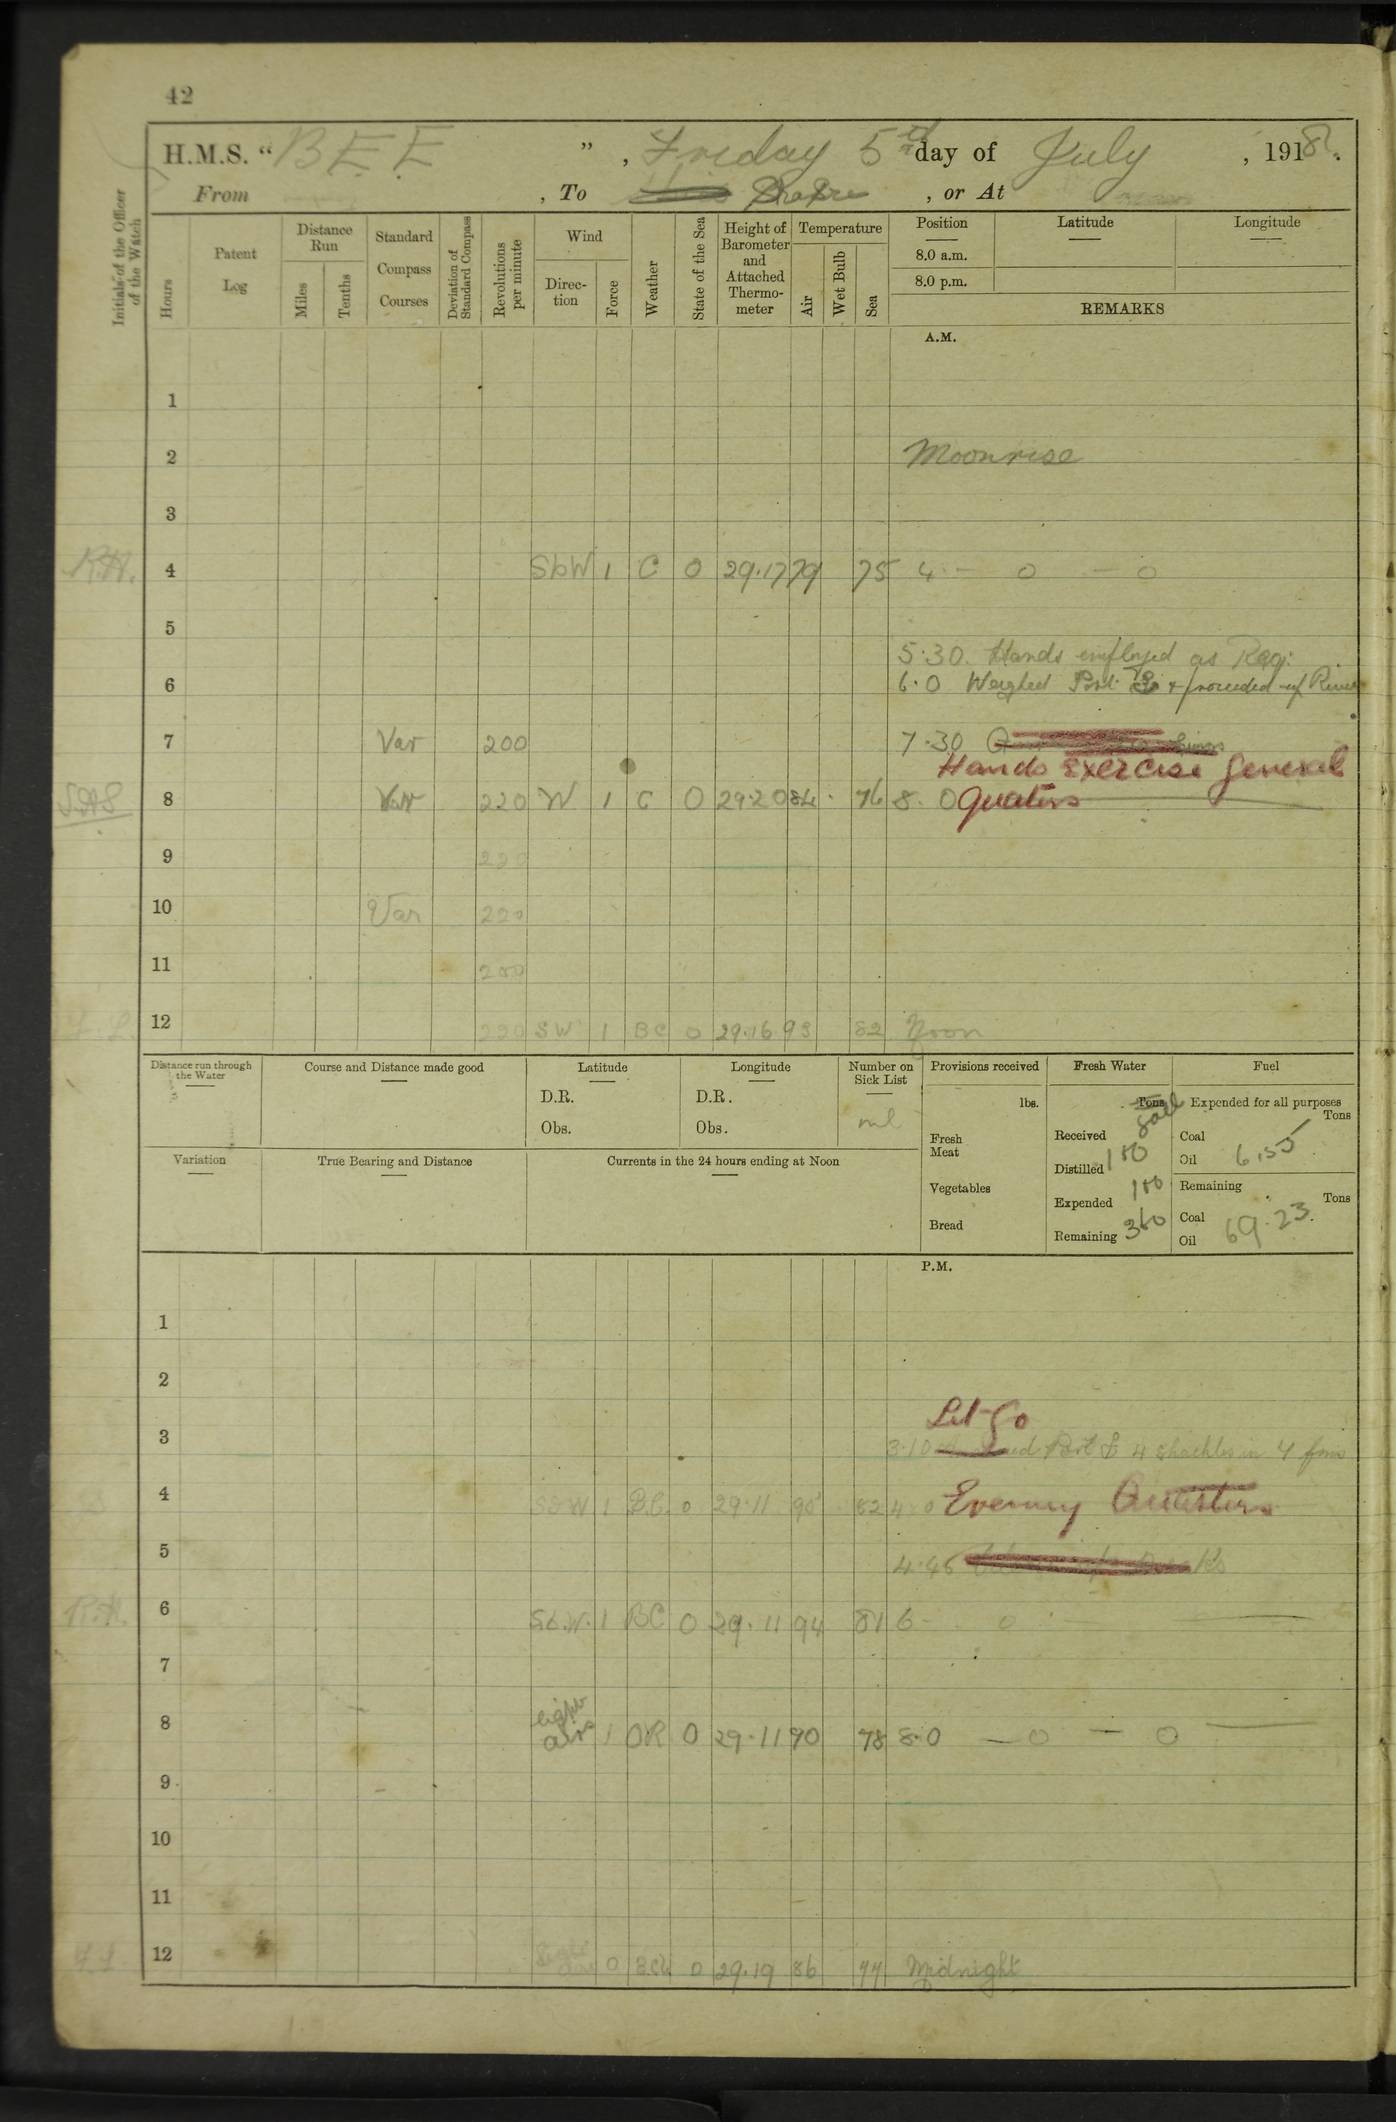 42
H.M.S. “ BEE ” , Friday 5th day of July , 1918.
From , To , or At
Initials of the Officer of the Watch
Hours
Patent Log
Distance Run
Miles
Tenths
Standard Compass Courses
Deviation of Standard Compass
Revolutions per minute
Wind
Direction
Force
Weather
State of the Sea
Height of Barometer and Attached Thermometer
Temperature
Air
Wet Bulb
Sea
Position Latitude Longitude
8.0 a.m.
8.0 p.m.
REMARKS
A.M.
1
2 Moonrise
3
R.H. 4 SbW 1 C 0 29.17 79 75 4 — 0 — 0
5
5.30. Hands employed as Req:
6 6.0 Weighed Port & proceeded up River
7 Var 200 7.30
Hands Exercise General
8 Var 220 W 1 C 0 29.20 84 76 8.0 Quaters
9 220
10 Var 220
11 200
12 220 SW 1 BC 0 29.16 93 82 Noon
Distance run through the Water
Course and Distance made good
Latitude
D.R.
Obs.
Longitude
D.R.
Obs.
Number on Sick List
nil
Variation
True Bearing and Distance
Currents in the 24 hours ending at Noon
Provisions received
lbs.
Fresh Meat
Vegetables
Bread
Fresh Water
Tons Gall
Received
Distilled 180
Expended 180
Remaining 360
Fuel
Expended for all purposes
Tons
Coal
Oil 6.55
Remaining
Tons
Coal
Oil 69.23.
P.M.
1
2
Let Go
3 3.10 Port 4 shackles in 4 fms
4 SbW 1 B.C. 0 29.11 90 82 4.0 Evening Quarters
5 4.45
R.H. 6 Sb.W. 1 BC 0 29.11 94 81 6 - 0
7
8 light airs 1 OR 0 29.11 90 78 8.0 — 0 — 0
9
10
11
12 0 0 29.19 86 77 Midnight